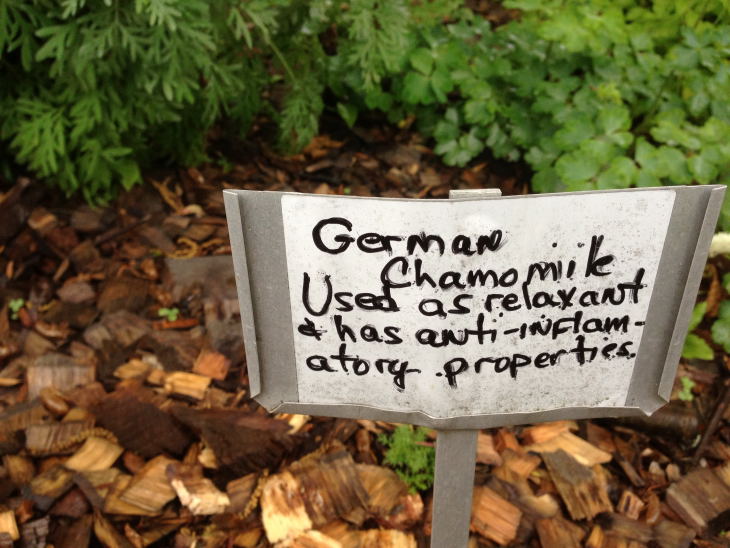 German
Chamomile
Used as relaxant
& has anti-inflam-
atory properties.